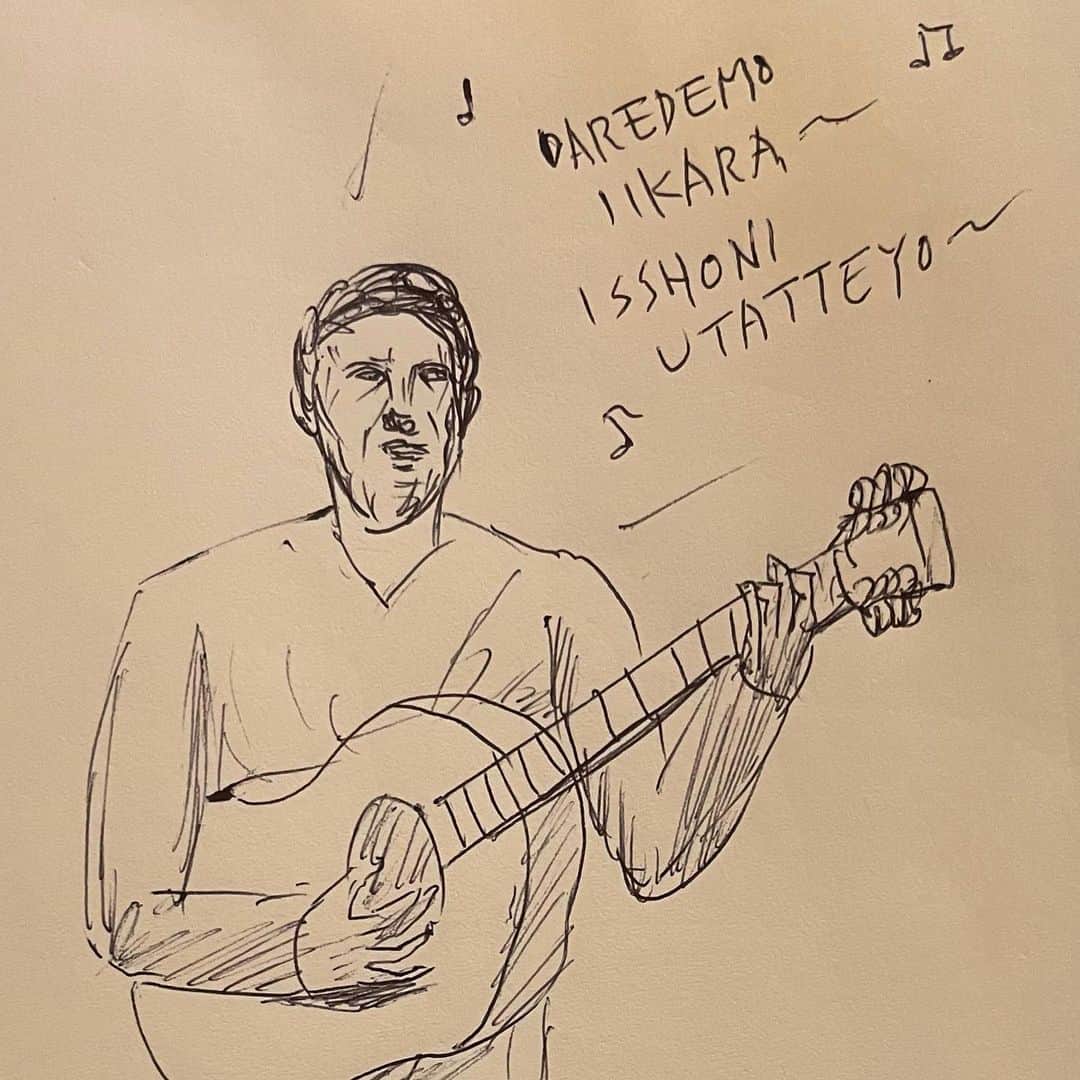 DAREDEMO
IIKARA～
ISSHONI
UTATTEYO～